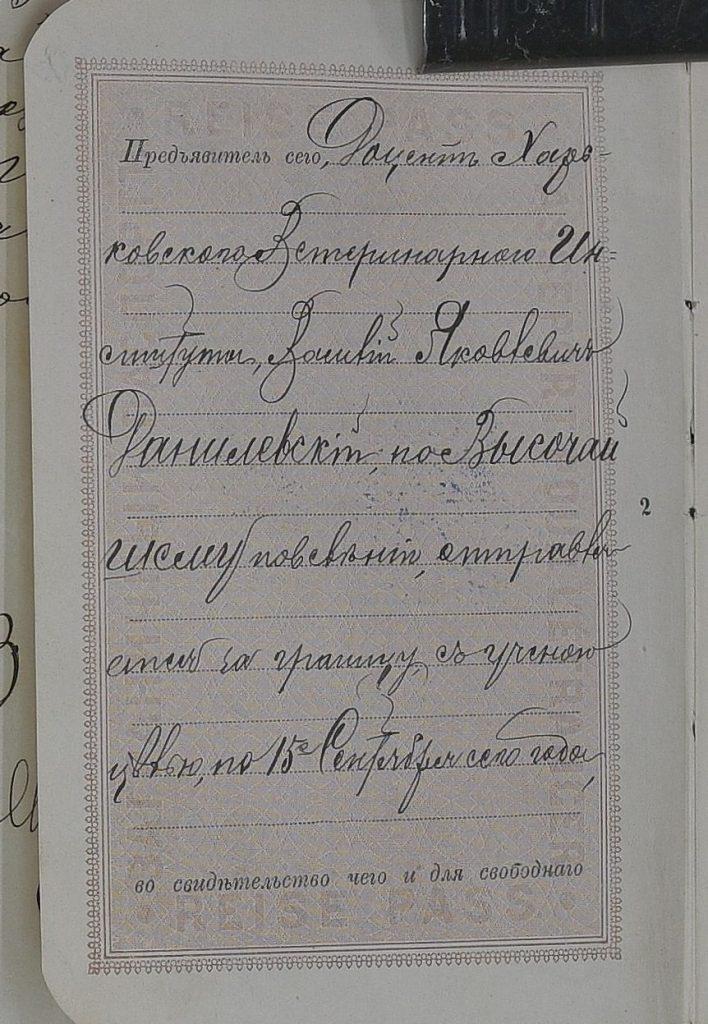 Предъявитель сего, Доцентъ Харь-
ковскаго Ветеринарнаго Ин-
ститута, Василій Яковлевичъ
Данилевскій, по Высочай
шему повелѣнію, отправля
ется за границу, съ ученою
цѣлью, по 15е Сентября сего года,
во свидѣтельство чего и для свободнаго
2
REISE PASS